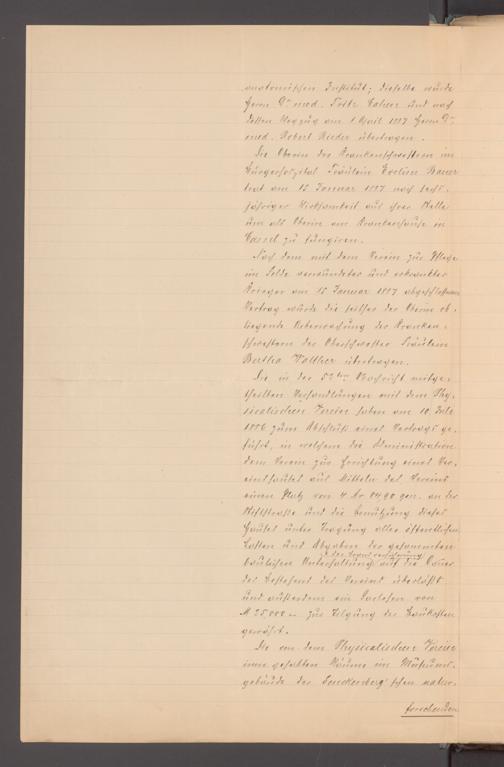 anatomischen Institut; dieselbe wurde
Herrn Dr med. Fritz Cahen und nach
dessen Wegzug am 1. April 1887 Herrn Dr
med. Robert Rieder übertragen.
Die Oberin der Krankenschwestern im
Bürgerhospital Fräulein Eveline Bauer
trat am 15 Januar 1887 nach sechs-
jähriger Wirksamkeit aus ihrer Stelle
um als Oberin am Krankenhause in
Cassel zu fungiren.
Nach dem mit dem Verein zur Pflege
im Felde verwundeter und erkrankter
Krieger am 15 Januar 1887 abgeschlossenen
Vertrag wurde die seither der Oberin ob-
liegende Ueberwachung der Kranken-
schwestern der Oberschwester Fräulein
Bertha Walther übertragen.
Die in der 52ten Nachricht mitge-
theilten Verhandlungen mit dem Phy-
sicalischen Verein haben am 10. Juli
1886 zum Abschluß eines Vertrags ge-
führt, in welchem die Administration
dem Verein zur Errichtung eines Ver-
einshauses aus Mitteln des Vereins
einen Platz von 4 Ar 84,90 qm. an der
Stiftstraße und die Benutzung dieses
Hauses unter Tragung aller öffentlichen
Lasten und Abgaben der gesammten
baulichen Unterhaltung auf die Dauer
des Bestehens des Vereins überläßt
und außerdem ein Darlehen von
M 25,000 – zur Tilgung der Baukosten
gewährt.
Die von dem Physicalischen Verein
inne gehabten Räume im Museums-
gebäude der Senckenberg'schen natur-
forschenden